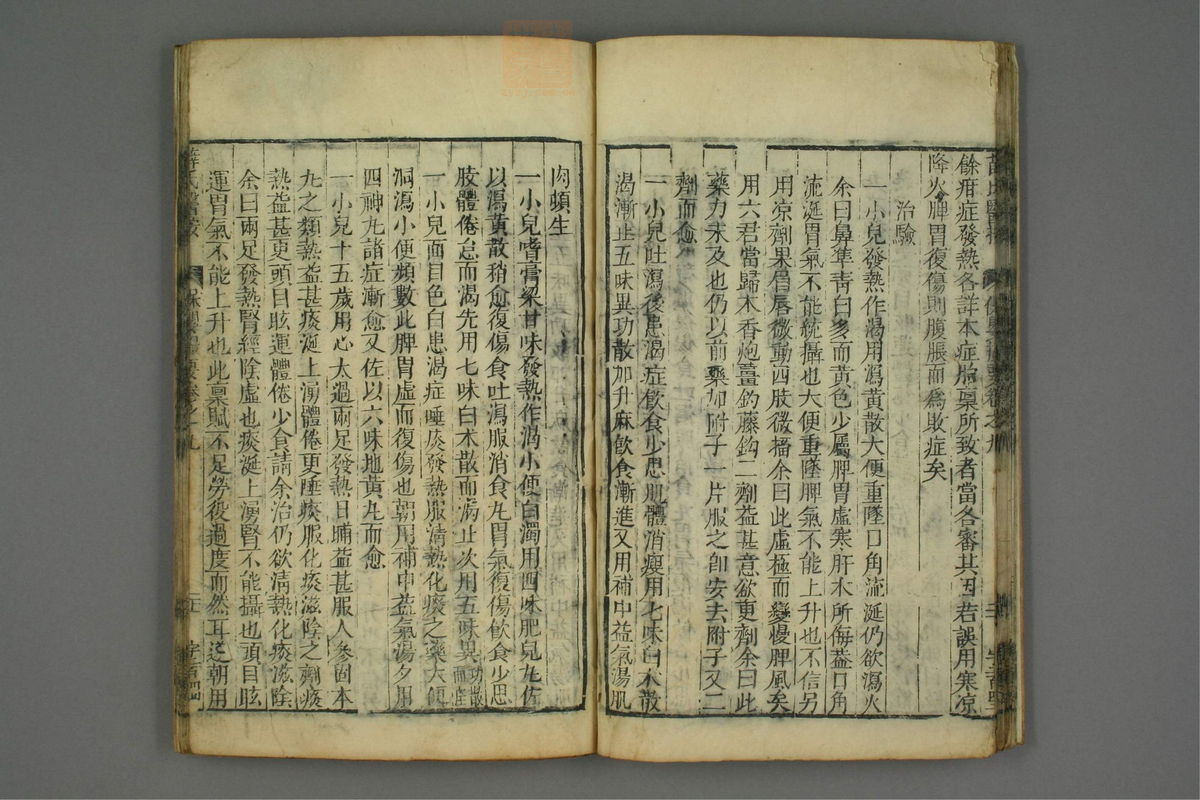 餘疳症發熱各詳本症胎稟所致者當各審其因若誤用寒凉
降火脾胃復傷則腹脹而為敗症矣
治驗
一小兒發熱作渴用瀉黃散大便重墜口角流涎仍欲瀉火
余曰鼻準青白多而黃色少屬脾胃虛寒肝木所侮蓋口角
流涎胃氣不能統攝也大便重墜脾氣不能上升也不信另
用凉劑果眉唇微動四肢微搐余曰此虛極而變慢脾風矣
用六君當歸木香炮薑釣藤鈎二劑益甚意欲更劑余曰此
藥力未及也仍以前藥加附子一片服之卽安去附子又二
劑而愈
一小兒吐瀉後患渴症飲食少思肌體消瘦用七味白木散
渴漸止五味異功散加升麻飲食漸進又用補中益氣湯肌
肉頓生
一小兒嗜膏粱甘味發熱作渴小便白濁用四味肥兒丸佐
以瀉黃散稍愈復傷食吐瀉服消食丸胃氣復傷飲食少思
肢體倦怠而渴先用七味白木散而渴止次用五味異功散而痊
一小兒面目色白患渴症唾痰發熱服清熱化痰之藥大便
洞瀉小便頻數此脾胃虛而復傷也朝用補中益氣湯夕用
四神丸諸症漸愈又佐以六味地黃丸而愈
一小兒十五歲用心太過兩足發熱日晡益甚服人參固本
丸之類熱益甚痰涎上湧體倦更唾痰服化痰滋陰之劑痰
熱益甚更頭目眩運體倦少食請余治仍欲清熱化痰滋陰
余曰兩足發熱腎經陰虛也痰涎上湧腎不能攝也頭目眩
運胃氣不能上升也此稟賦不足勞役過度而然耳遂朝用